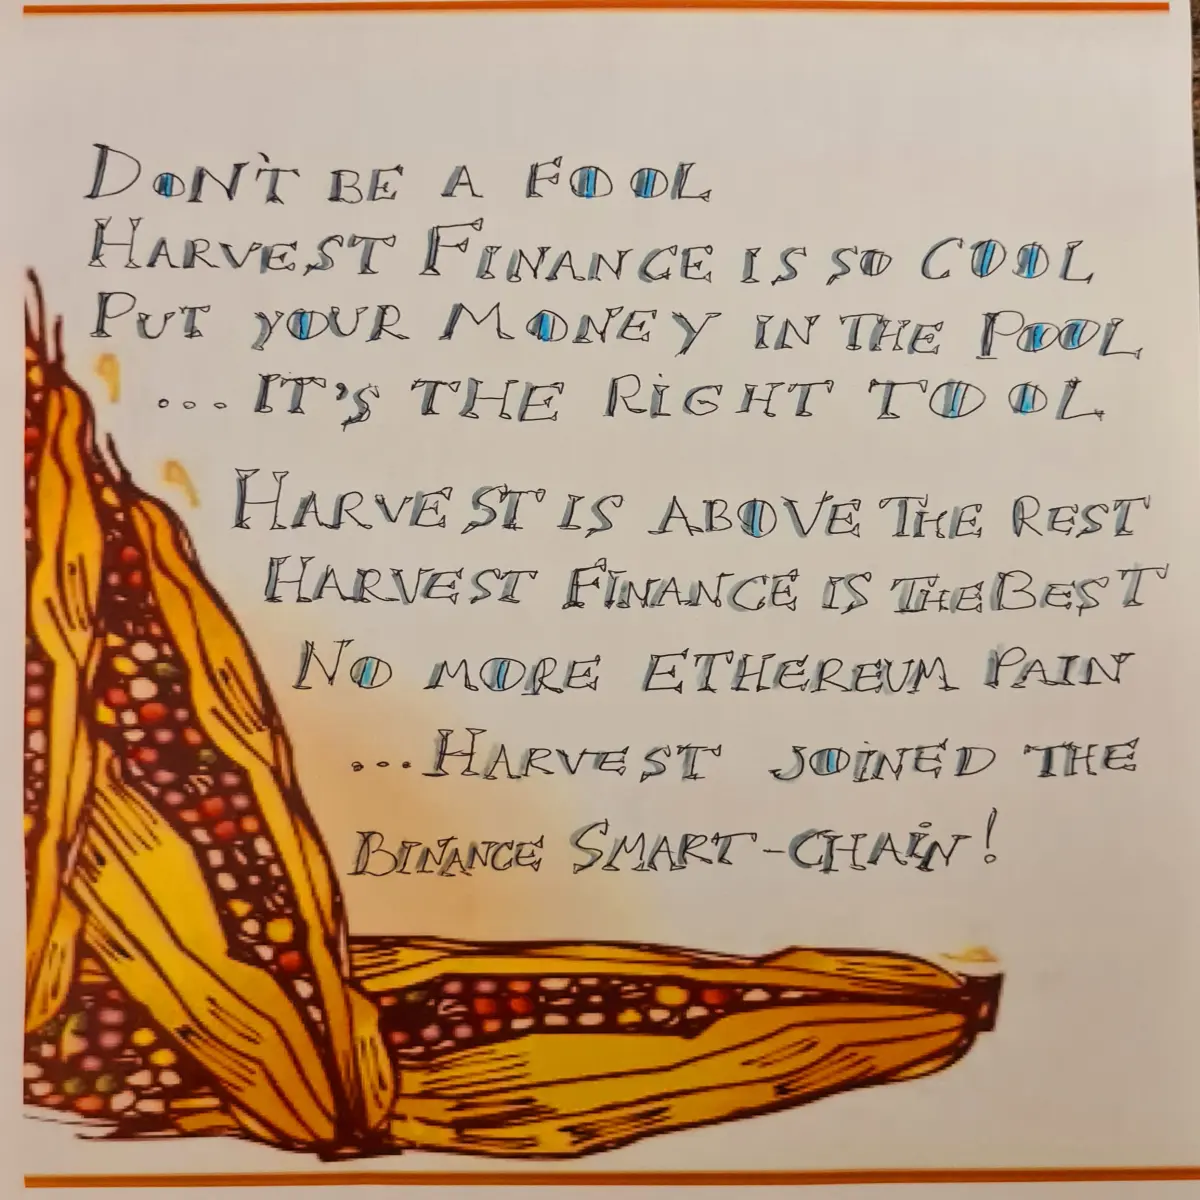 Don't be a fool
Harvest Finance is so cool
Put your Money in the Pool
...it's the Right Tool
Harvest is above the rest
Harvest Finance is the Best
No more Ethereum Pain
...Harvest joined the
Binance Smart-Chain!